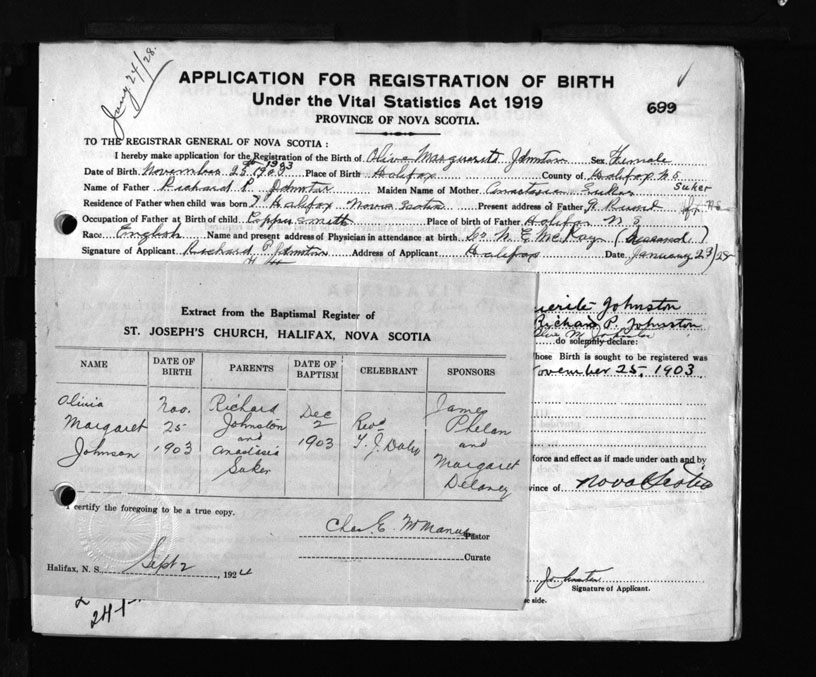 Jany 24/28.
APPLICATION FOR REGISTRATION OF BIRTH
Under the Vital Statistics Act 1919
699
PROVINCE OF NOVA SCOTIA.
TO THE REGISTRAR GENERAL OF NOVA SCOTIA :
I hereby make application for the Registration of the Birth of Olive Marguerite Johnston Sex Female
Date of Birth November 25th 1903 Place of Birth Halifax County of Halifax N S
Name of Father Richard P. Johnston Maiden Name of Mother Anastasia Suker
Residence of Father when child was born Halifax Nova Scotia Present address of Father
Occupation of Father at Birth of child Coppersmith Place of birth of Father Halifax N S
Race English Name and present address of Physician in attendance at birth McKay (Deceased)
Signature of Applicant Richard P Johnston Address of Applicant Halifax Date January 23/28
Extract from the Baptismal Register of
ST. JOSEPH'S CHURCH, HALIFAX, NOVA SCOTIA
NAME DATE OF BIRTH PARENTS DATE OF BAPTISM CELEBRANT SPONSORS
Olivia Margaret Johnson Nov. 25 1903 Richard Johnston and Anastasia Suker Dec 2 1903 Revd T. J. Daly James Phelan and Margaret Delaney
I certify the foregoing to be a true copy.
Chas. E. McManus Pastor
Curate
Halifax, N. S., Sept 2, 1924
uerite Johnston
Richard P. Johnston
do solemnly declare:
hose Birth is sought to be registered was
November 25, 1903.
force and effect as if made under oath and by
vince of Nova Scotia
Johnston
Signature of Applicant.
se side.